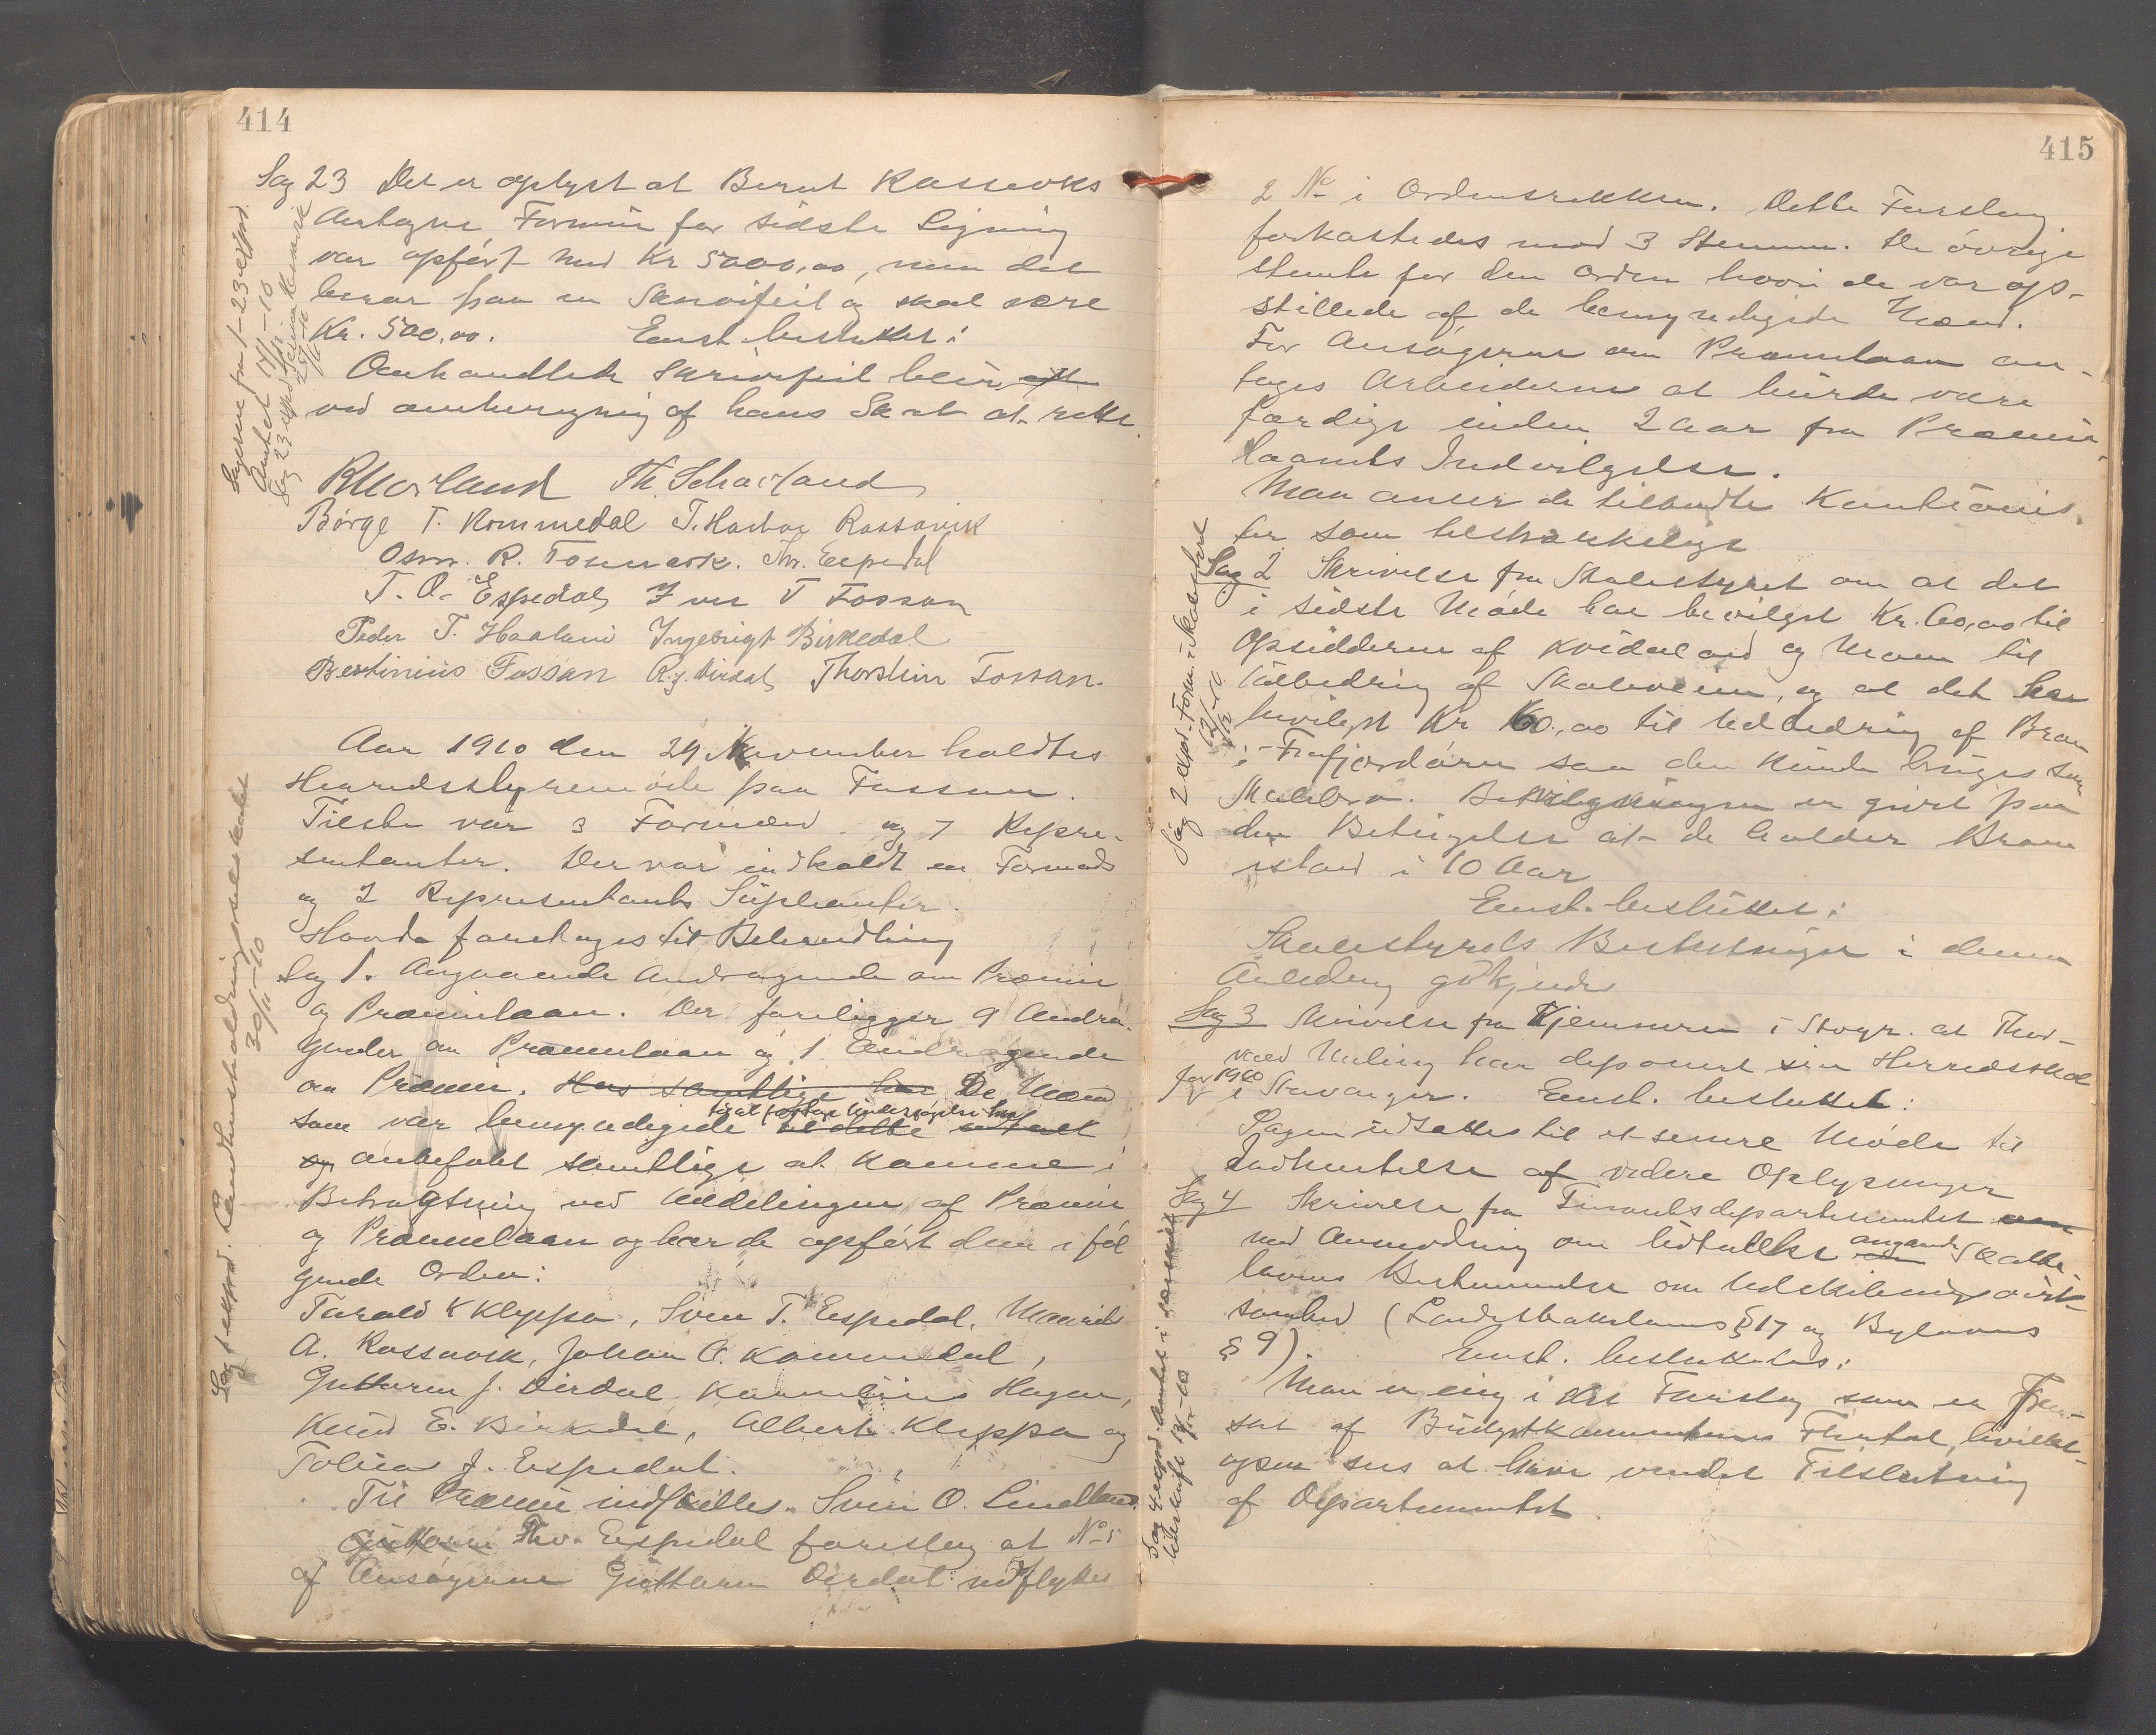 414
Sag 23 Det er oplyst at Bernt Rosseviks
Antagne Formue for sidste Ligning
var opført med Kr 5000,00, men det
beror paa en Skrivfeil og skal være
Kr. 500,00. Enst. besluttet:
Omhandlede Skrivfeil blir
ved omberegning af hans Skat at rette.
Sagerne fra 1-23 expd.
Amtet 17/11-10
Sag 23 expd
Th. Schavland
Børge T. Kommedal T. Rossavik
Osm. R. Fosmark. Thr. Espedal
T. O. Espedal Iver T Fossan
Peder T. Haaland Ingebrigt Birkedal
Bertinius Fossan R. J. Dirdal Thorstein Fossan.
Aar 1910 den 24 November holdtes
Herredsstyremøde paa Fossan.
Tilstede var 3 Formænd og 7 Repre-
sentanter. Der var indkaldt en Formands
og 2 Representants Supleanter.
Hvorda foretages til Behandling
Sag 1. Angaaende Andragende om Præmie
og Præmielaan. Der foreligger 9 Andra-
gender om Præmielaan og 1 Andragende
om Præmie. Hos samtlige har De Mænd
til at foretage Undersøgelse
som var bemyndigede til dette
og anbefalet samtlige at komme i
Betragtning ved Uddelingen af Præmie
og Præmielaan og har de opført dem i føl
gende Orden:
Tarald K Kleppa, Sven T. Espedal, Maurits
A. Rossavik, Johan A. Kommedal,
Guttorm J. Dirdal, Hagen,
Knud E. Birkedal, Albert Kleppa og
Tobias J. Espedal.
Til Præmie indstilles Sven O. Lindland.
Guttorm Thr. Espedal foreslog at No 5
af Ansøgerne Guttorm Dirdal udflyttes
Sag 1 expd. Landhusholdningsselskabet
30/11-10
415
2 No i Ordensrekken. Dette Forslag
forkastedes mod 3 Stemmer. De øvrige
stemte for den Orden hvori de var op-
stillede af de bemyndigede Mænd.
For Ansøgerne om Præmielaan an-
tages Arbeiderne at burde være
færdige inden 2 Aar fra Præmie-
laanets Indvilgelse.
Man anser de tilbudte Kautionis-
ter som tilstrækkelige
Sag 2 Skrivelse fra Skolestyret om at det
i sidste Møde har bevilget Kr. 60,00 til
Opsidderne af Kvidaland og Moen til
Udbedring af Skoleveien, og at det har
bevilget Kr 160,00 til Udbedring af Broen
i Frafjordøren saa den kunde bruges som
Skolebro. Bevilgningen er givet paa
den Betingelse at de holder Broen
istand i 10 Aar
Enst. besluttet:
Skolestyrets Beslutninger i denne
Anledning godkjendes
Sag 3 Skrivelse fra Kjemneren i Stvgr. at Thor-
vald Meling har deponert sin Herredsskat
for 1910 i Stavanger. Enst. besluttet:
Sagen udsættes til et senere Møde til
Indhentelse af videre Oplysninger
Sag 4 Skrivelse fra Finantsdepartementet om
med Anmodning om Udtallelse om angaaende Skatte-
lovens Bestemmelse om Udskibningsvirk-
somhed (Landsskattelovens § 17 og Bylovens
§ 9). Enst. besluttedes:
Man er enig i det Forslag som er frem-
sat af Budgetkommiteens Flertal, hvilket
ogsaa sees at have vundet Tilslutning
af Departementet.
Sag 2 expd. Form. i Skolestyret
12/12-10
Sag 4 expd. Amtet i særskilt
Udskrift 13/12-10